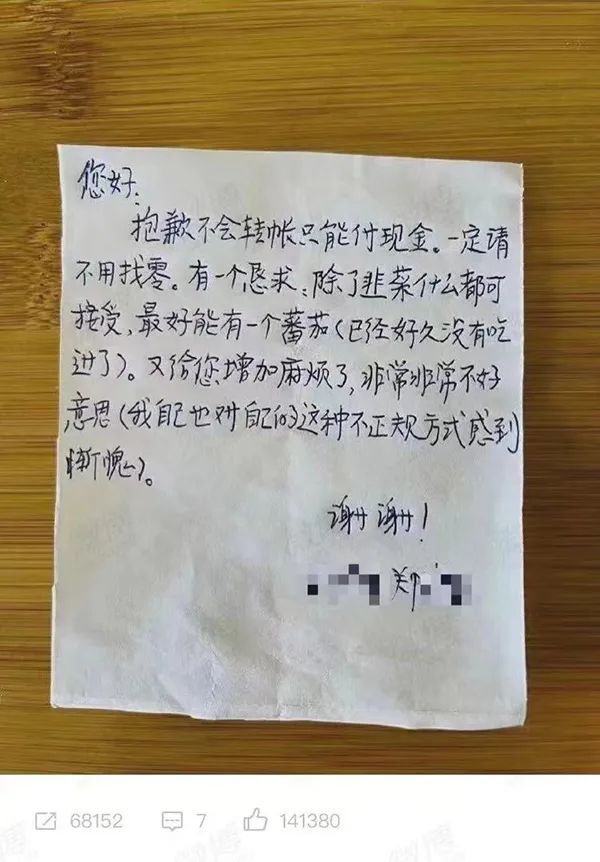 您好:
抱歉不会转帐只能付现金。一定请
不用找零。有一个恳求:除了韭菜什么都可
接受,最好能有一个蕃茄(已经好久没有吃
进了)。又给您增加麻烦了,非常非常不好
意思(我自己也对自己的这种不正规方式感到
惭愧)。
谢谢!
郑
68152 7 141380